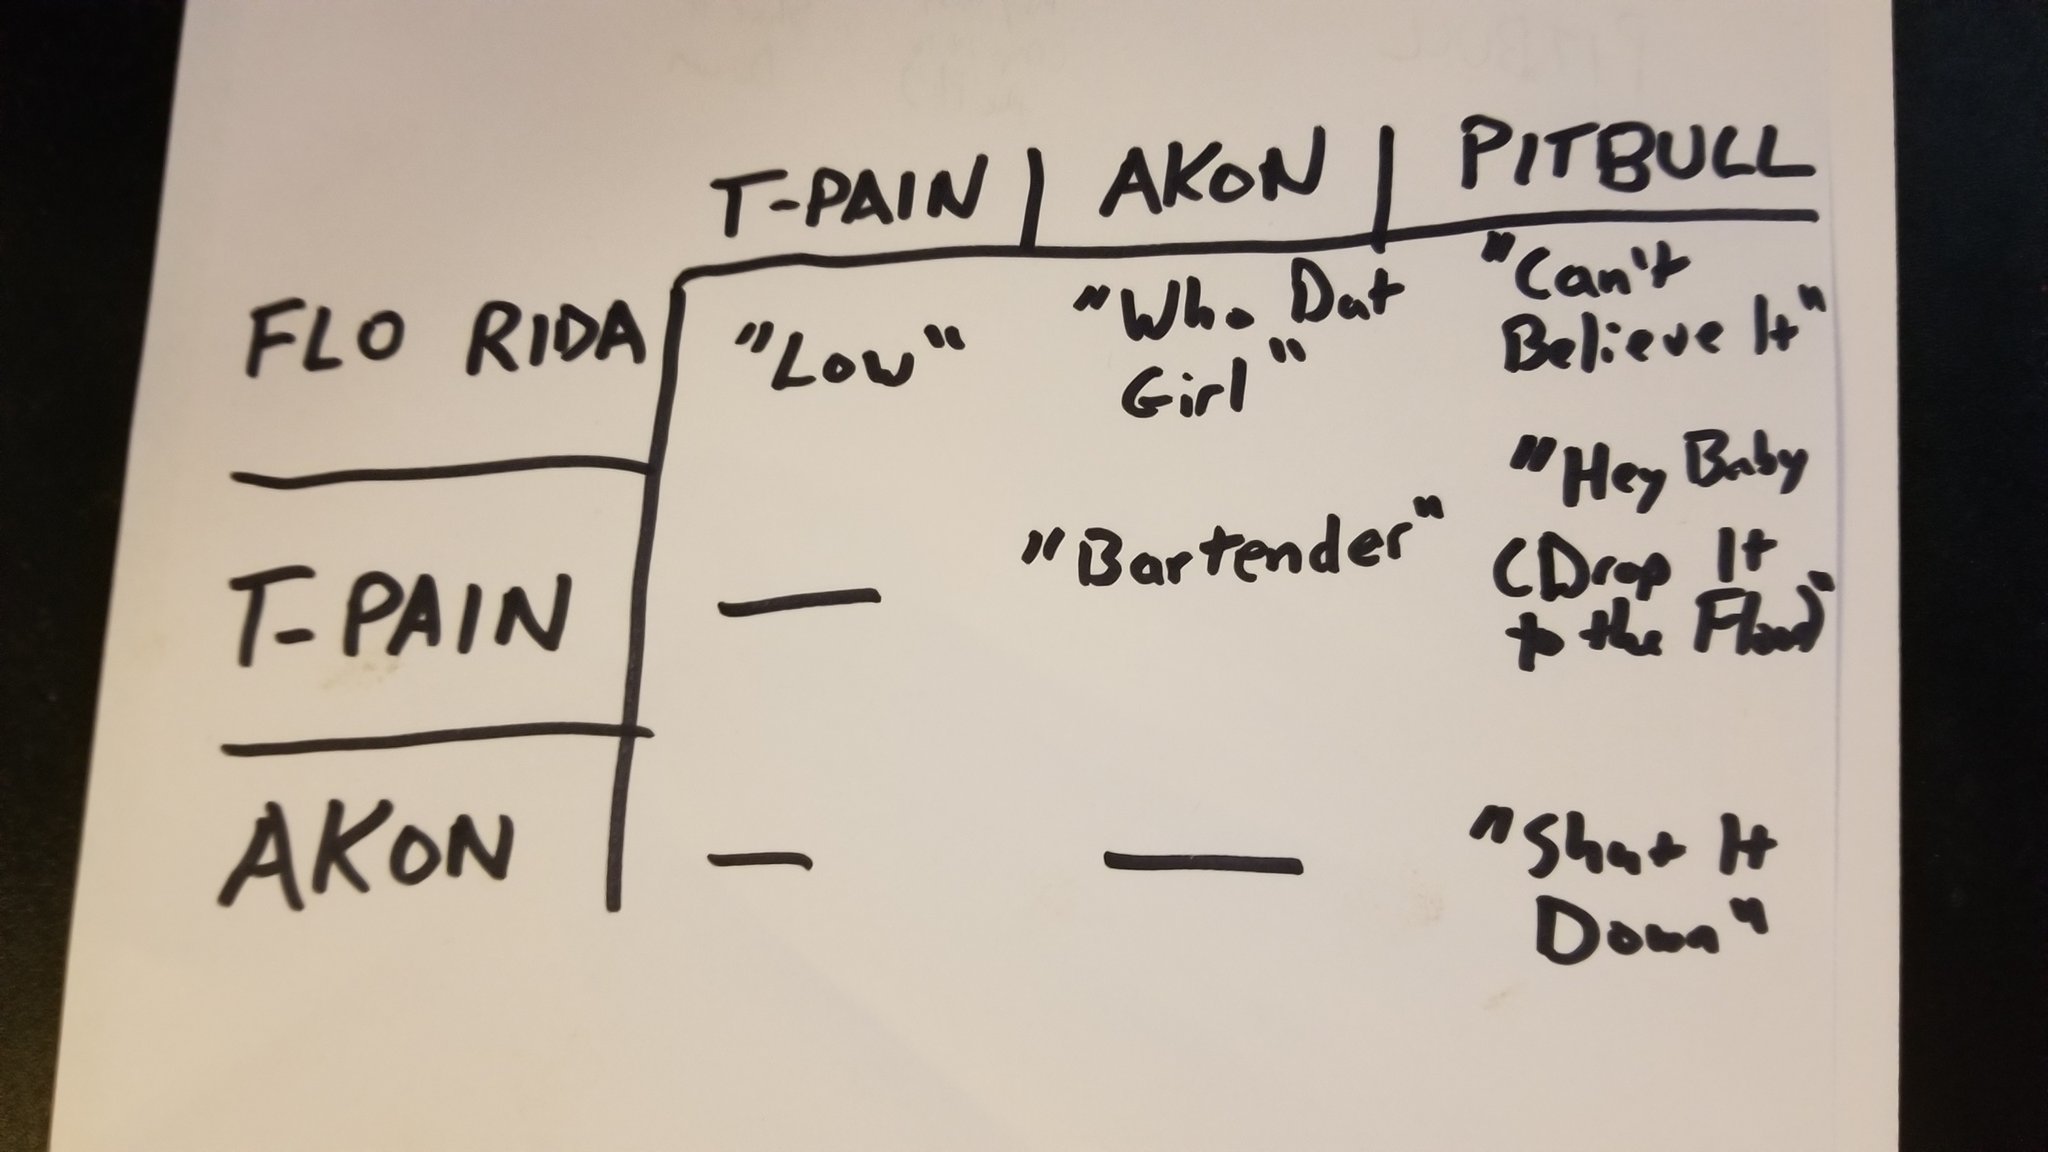 T-PAIN | AKON | PITBULL
FLO RIDA
"Low"
"Who Dat
Girl"
"Can't
Believe It"
T-PAIN
—
"Bartender"
"Hey Baby
(Drop It
to the Floor)"
AKON
—
—
"Shut It
Down"